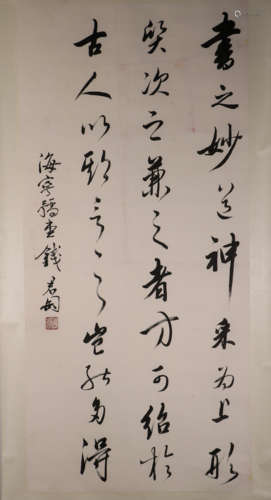 書之妙道神采为上形
質次之兼之者方可紹於
古人以斯言之豈能多得
海寧錢君匋